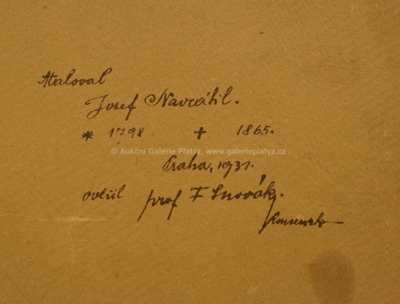 Maloval
Josef Navrátil.
* 1798 + 1865.
© Aukční Galerie Platýz, www.galerieplatyz.cz
Praha, 1931.
ověřil prof F